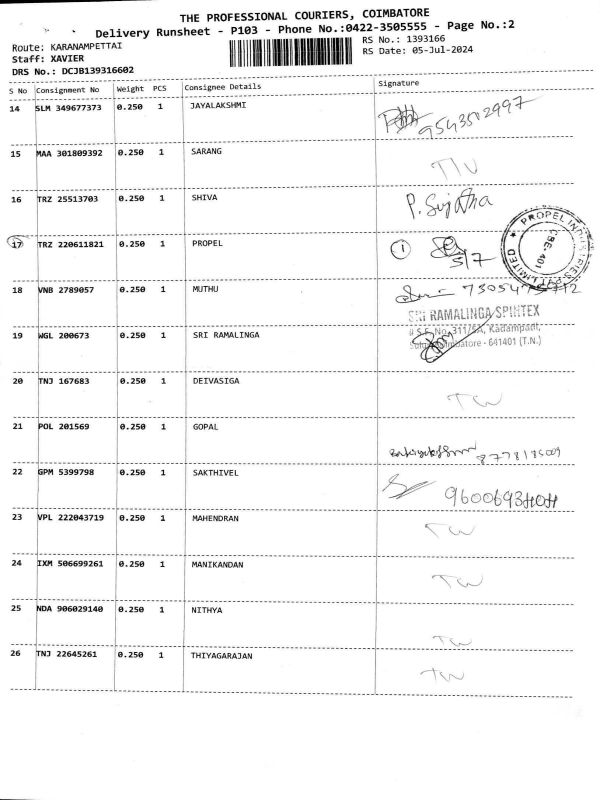 THE PROFESSIONAL COURIERS, COIMBATORE
Delivery Runsheet - P103 - Phone No.:0422-3505555 - Page No.:2
Route: KARANAMPETTAI RS No.: 1393166
Staff: XAVIER RS Date: 05-Jul-2024
DRS No.: DCJB139316602
S No Consignment No Weight PCS Consignee Details Signature
14 SLM 349677373 0.250 1 JAYALAKSHMI 9543502997
15 MAA 301809392 0.250 1 SARANG
16 TRZ 25513703 0.250 1 SHIVA P. Sujatha
17 TRZ 220611821 0.250 1 PROPEL 1 5/7
PROPEL INDUSTRIES PVT LIMITED ★
CBE. 401
18 VNB 2789057 0.250 1 MUTHU
SRI RAMALINGA SPINTEX
# S.F. No. 311/5A, Kadampadi,
Coimbatore - 641401 (T.N.)
19 WGL 200673 0.250 1 SRI RAMALINGA
20 TNJ 167683 0.250 1 DEIVASIGA
21 POL 201569 0.250 1 GOPAL
22 GPM 5399798 0.250 1 SAKTHIVEL 9600693404
23 VPL 222043719 0.250 1 MAHENDRAN
24 IXM 506699261 0.250 1 MANIKANDAN
25 NDA 906029140 0.250 1 NITHYA
26 TNJ 22645261 0.250 1 THIYAGARAJAN